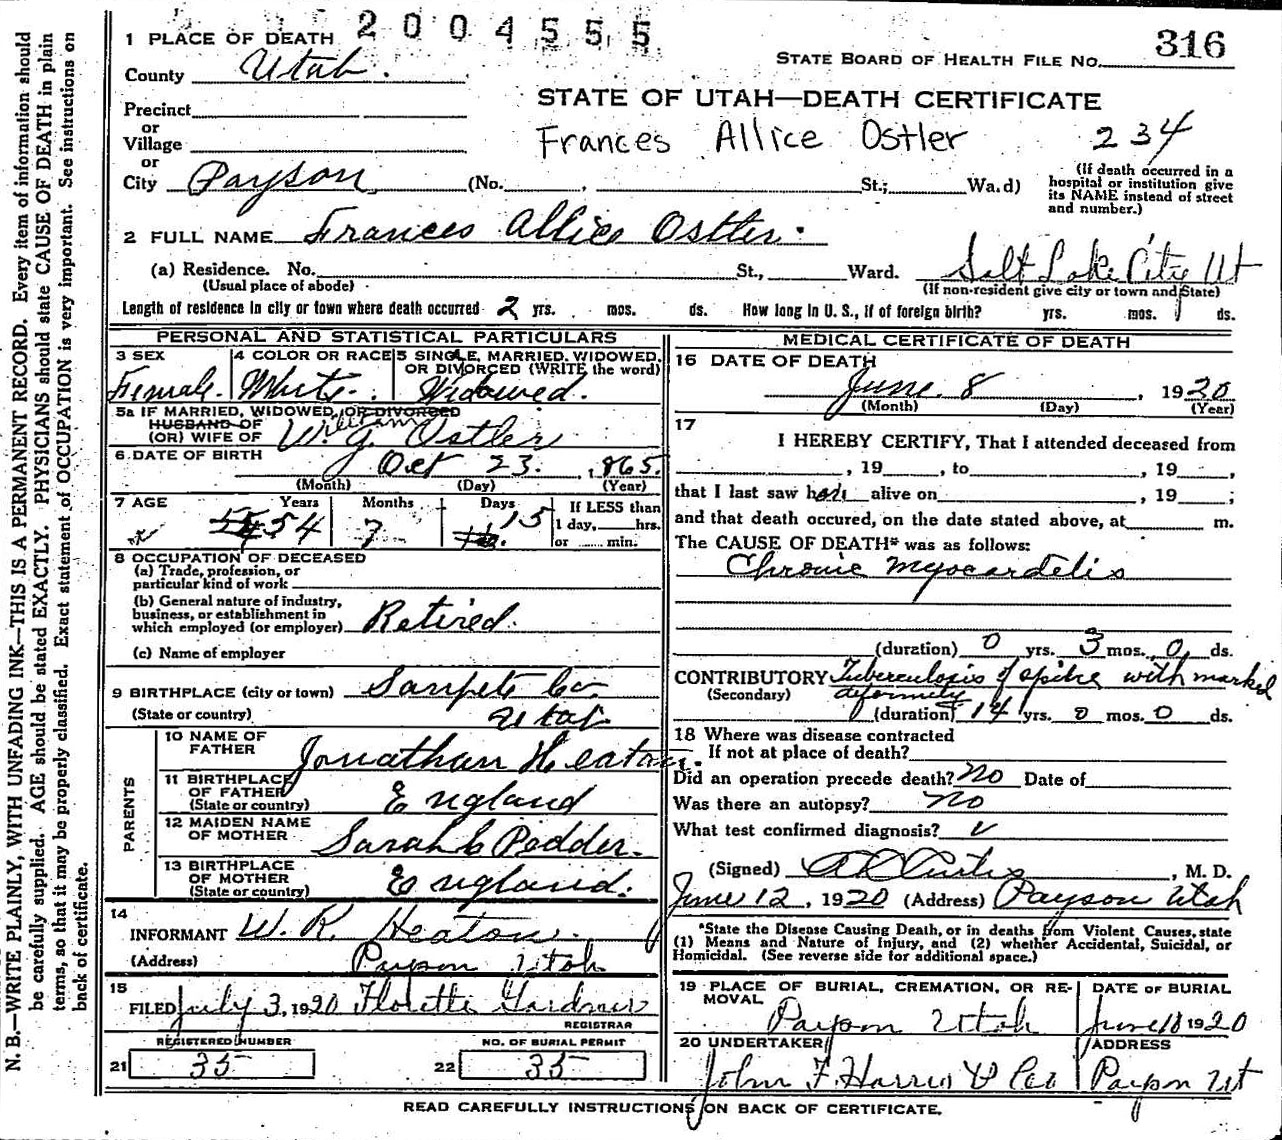 2004555
1 PLACE OF DEATH
316
STATE BOARD OF HEALTH FILE No.
County Utah.
STATE OF UTAH—DEATH CERTIFICATE
Precinct
or
Village
Frances Allice Ostler
234
or
City Payson (No. , St.; Wa.d)
(If death occurred in a hospital or institution give its NAME instead of street and number.)
2 FULL NAME Frances Allice Ostler.
(a) Residence. No. St., Ward. Salt Lake City Ut
(Usual place of abode)
(If non-resident give city or town and State)
Length of residence in city or town where death occurred 2 yrs. mos. ds. How long in U. S., if of foreign birth? yrs. mos. ds.
PERSONAL AND STATISTICAL PARTICULARS
3 SEX
Female.
4 COLOR OR RACE
White.
5 SINGLE, MARRIED, WIDOWED,
OR DIVORCED (WRITE the word)
Widowed.
5a IF MARRIED, WIDOWED, OR DIVORCED
HUSBAND OF
(OR) WIFE OF W. G. Ostler
William
6 DATE OF BIRTH Oct 23. , 1865.
(Month) (Day) (Year)
7 AGE Years Months Days
54 7 15
If LESS than
1 day, hrs.
or min.
8 OCCUPATION OF DECEASED
(a) Trade, profession, or
particular kind of work
(b) General nature of industry,
business, or establishment in
which employed (or employer) Retired.
(c) Name of employer
9 BIRTHPLACE (city or town) Sanpete Co
(State or country) Utah
PARENTS
10 NAME OF
FATHER Jonathan Heaton.
11 BIRTHPLACE
OF FATHER
(State or country) England
12 MAIDEN NAME
OF MOTHER Sarah C Pedder.
13 BIRTHPLACE
OF MOTHER
(State or country) England.
14
INFORMANT W. R. Heaton.
(Address) Payson Utah
15
FILED July 3, 1920 Florette Gardner
REGISTRAR
REGISTERED NUMBER
21 35
NO. OF BURIAL PERMIT
22 35
MEDICAL CERTIFICATE OF DEATH
16 DATE OF DEATH
June. 8 , 1920
(Month) (Day) (Year)
17
I HEREBY CERTIFY, That I attended deceased from
, 19 , to , 19 ,
that I last saw her alive on , 19 ;
and that death occured, on the date stated above, at m.
The CAUSE OF DEATH* was as follows:
Chronic Myocardetis
(duration) 0 yrs. 3 mos. 0 ds.
CONTRIBUTORY Tuberculosis of spine with marked
(Secondary) deformity
(duration) 14 yrs. 0 mos. 0 ds.
18 Where was disease contracted
If not at place of death?
Did an operation precede death? No Date of
Was there an autopsy? No
What test confirmed diagnosis?
(Signed) Curtis , M. D.
June 12, 1920 (Address) Payson Utah
*State the Disease Causing Death, or in deaths from Violent Causes, state
(1) Means and Nature of Injury, and (2) whether Accidental, Suicidal, or
Homicidal. (See reverse side for additional space.)
19 PLACE OF BURIAL, CREMATION, OR RE-
MOVAL
Payson Utah
DATE OF BURIAL
June 1920
20 UNDERTAKER
John F. Harris & Co
ADDRESS
Payson Ut
READ CAREFULLY INSTRUCTIONS ON BACK OF CERTIFICATE.
N. B.—WRITE PLAINLY, WITH UNFADING INK—THIS IS A PERMANENT RECORD. Every item of information should
be carefully supplied. AGE should be stated EXACTLY. PHYSICIANS should state CAUSE OF DEATH in plain
terms, so that it may be properly classified. Exact statement of OCCUPATION is very important. See instructions on
back of certificate.